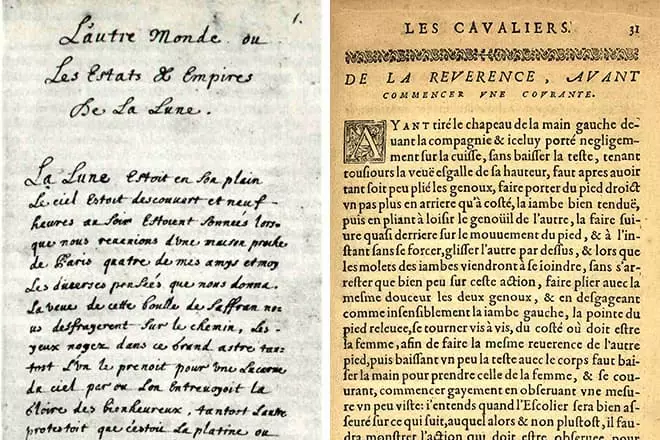 1.
L'autre Monde ou
Les Estats & Empires
De La Lune.
La Lune Estoit en son plain
Le ciel Estoit descouvert et neuf
heures au Soir Estoient Sonnées lors
que nous revenions d'une maison proche
de Paris quatre de mes amys et moy
Les diverses pensées que nous donna
La veue de cette boulle de Saffran no
us desfrayerent Sur le chemin, Les
yeux noyez dans ce Grand astre tan
tost L'un le prenoit pour une Lucarne
du ciel par ou L'on Entrevoyoit la
Gloire des bienheureux, tantost L'autre
protestoit que c'estoit La platine ou
LES CAVALIERS. 31
DE LA REVERENCE, AVANT
COMMENCER VNE COVRANTE.
AYANT tiré le chapeau de la main gauche de-
uant la compagnie & iceluy porté negligem-
ment sur la cuisse, sans baisser la teste, tenant
tousiours la veuë esgalle de sa hauteur, faut apres auoir
tant soit peu plié les genoux, faire porter du pied droict
vn pas plus en arriere qu'à costé, la iambe bien tenduë,
puis en pliant à loisir le genoüil de l'autre, la faire sui-
ure quasi derriere sur le mouuement du pied, & à l'in-
stant sans se forcer, glisser l'autre par dessus, & lors que
les molets des iambes viendront à se ioindre, sans s'ar-
rester que bien peu sur ceste action, faire plier auec la
mesme douceur les deux genoux, & en desgageant
comme insensiblement la iambe gauche, la pointe du
pied releuee, se tourner vis à vis, du costé où doit estre
la femme, afin de faire la mesme reuerence de l'autre
pied, puis baissant vn peu la teste auec le corps faut bai-
ser la main pour prendre celle de la femme, & se cou-
urant, commencer gayement en obseruant vne mesu-
re vn peu viste: i'entends quand l'Escolier sera bien as-
seuré sur ce qui suit, auquel alors & non plustost, il fau-
dra monstrer l'action que doit estre obseruee, pour